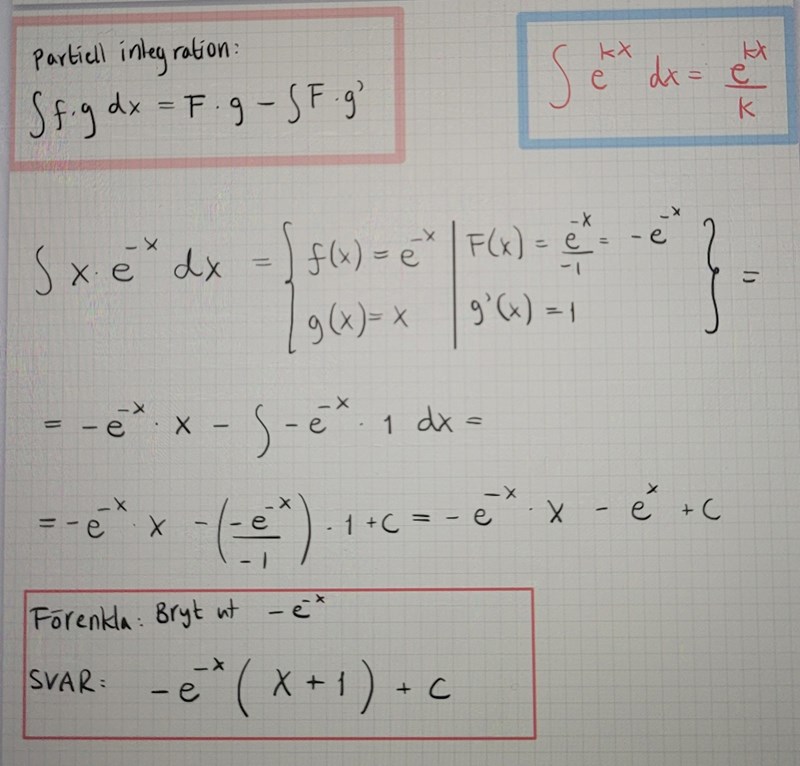 Partiell integration:
∫f·g dx = F·g − ∫F·g'
∫ e^{kx} dx = \frac{e^{kx}}{k}
∫ x·e^{-x} dx = { f(x) = e^{-x} | F(x) = \frac{e^{-x}}{-1} = -e^{-x} } =
g(x) = x | g'(x) = 1
= -e^{-x}·x − ∫ -e^{-x}·1 dx =
= -e^{-x}·x − (\frac{-e^{-x}}{-1})·1 + C = -e^{-x}·x − e^{x} + C
Förenkla: Bryt ut -e^{-x}
SVAR: -e^{-x} (x+1) + C